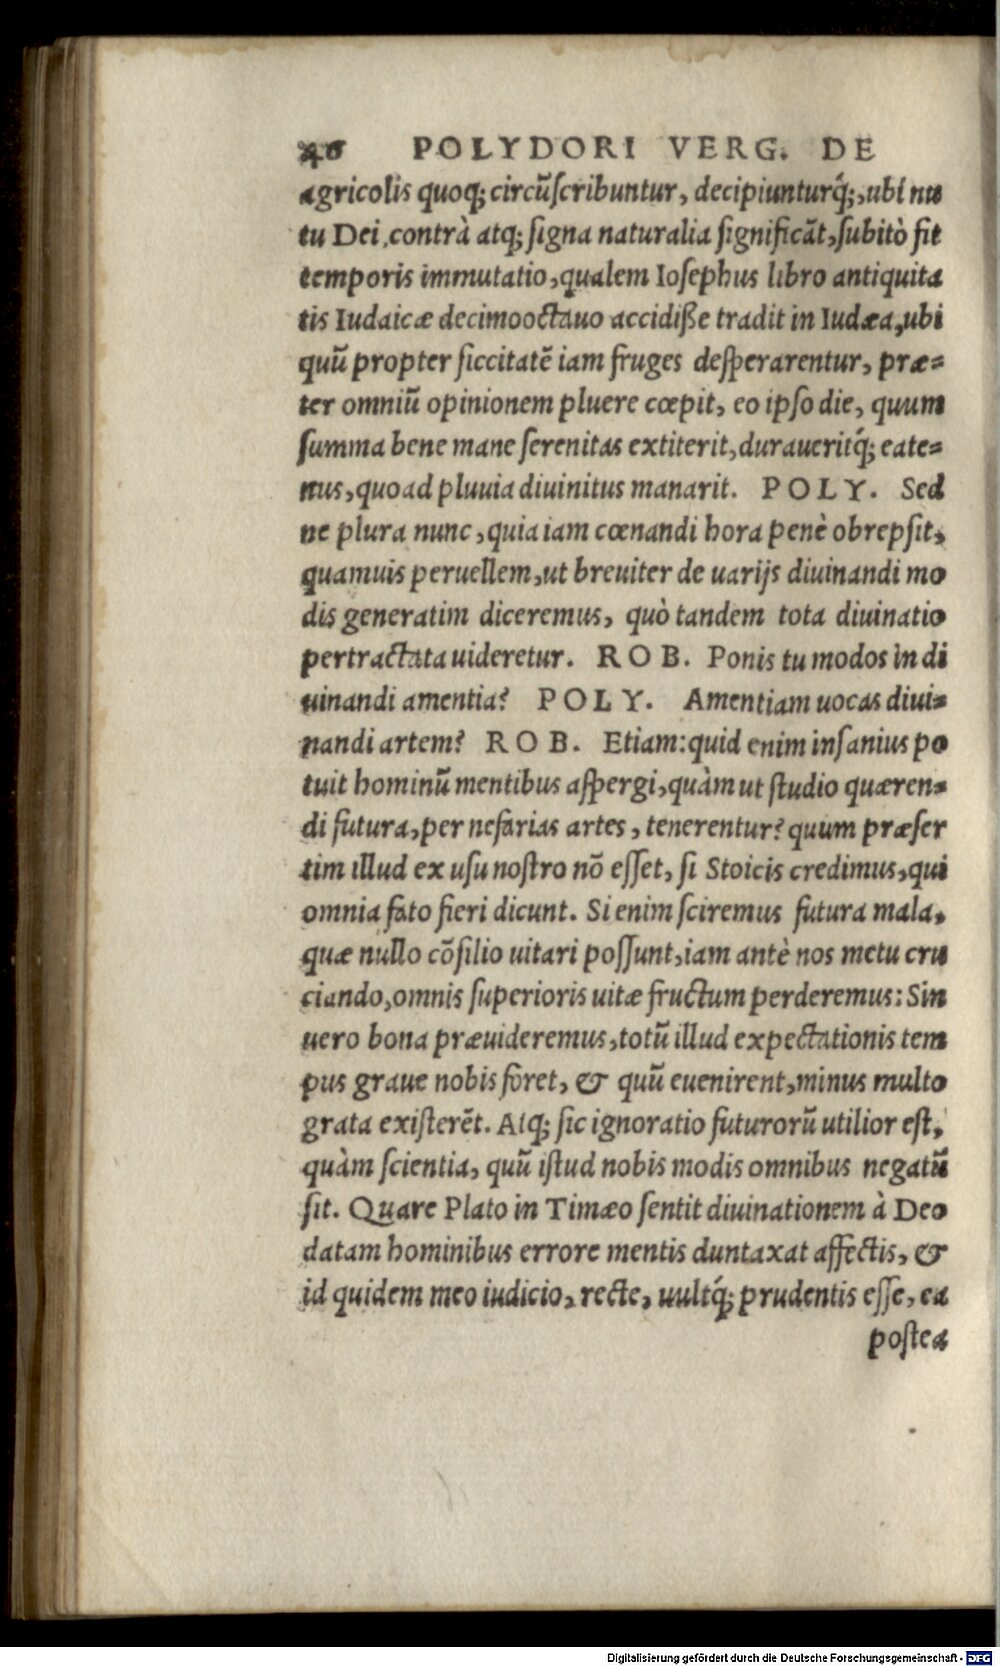 46 POLYDORI VERG. DE
agricolis quoq; circũſcribuntur, decipiunturq́;, ubi nu
tu Dei, contrà atq; ſigna naturalia ſignificãt, ſubitò fit
temporis immutatio, qualem Ioſephus libro antiquita
tis Iudaicæ decimooctauo accidiße tradit in Iudæa, ubi
quũ propter ſiccitatẽ iam fruges deſperarentur, præ=
ter omniũ opinionem pluere cœpit, eo ipſo die, quum
ſumma bene mane ſerenitas extiterit, duraueritq́; eate=
nus, quoad pluuia diuinitus manarit. POLY. Sed
ne plura nunc, quia iam cœnandi hora penè obrepſit,
quamuis peruellem, ut breuiter de uarijs diuinandi mo
dis generatim diceremus, quò tandem tota diuinatio
pertractata uideretur. ROB. Ponis tu modos in di
uinandi amentia? POLY. Amentiam uocas diui=
nandi artem? ROB. Etiam: quid enim inſanius po
tuit hominũ mentibus aſpergi, quàm ut ſtudio quæren=
di futura, per nefarias artes, tenerentur? quum præſer
tim illud ex uſu noſtro nõ eſſet, ſi Stoicis credimus, qui
omnia fato fieri dicunt. Si enim ſciremus futura mala,
quæ nullo cõſilio uitari poſſunt, iam antè nos metu cru
ciando, omnis ſuperioris uitæ fructum perderemus: Sin
uero bona præuideremus, totũ illud expectationis tem
pus graue nobis foret, & quũ euenirent, minus multo
grata exiſterẽt. Atq; ſic ignoratio futurorũ utilior eſt,
quàm ſcientia, quũ iſtud nobis modis omnibus negatũ
ſit. Quare Plato in Timæo ſentit diuinationem à Deo
datam hominibus errore mentis duntaxat affectis, &
id quidem meo iudicio, recte, uultq́; prudentis eſſe, ea
poſtea
Digitalisierung gefördert durch die Deutsche Forschungsgemeinschaft - DFG